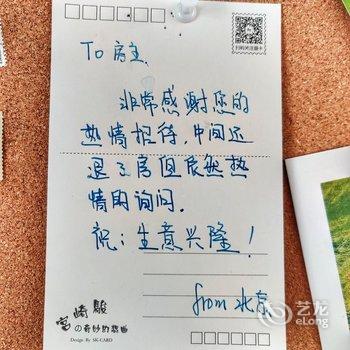 扫码关注猴卡
To 房主.
非常感谢您的
热情招待,中间还
退了房但依然热
情的询问。
祝:生意兴隆!
from 北京
宫崎駿
の奇妙的恋曲
Design By SK-CARD
艺龙
eLong